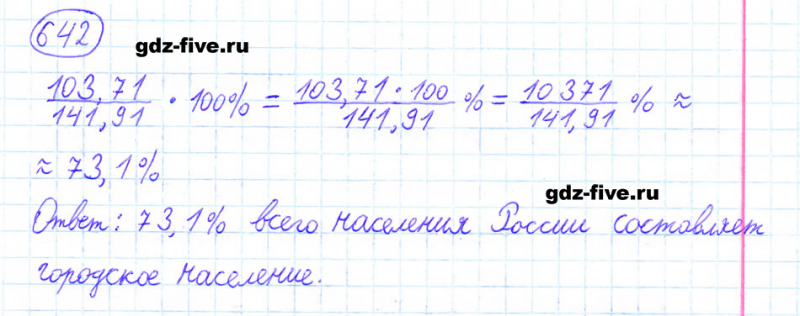 642
gdz-five.ru
103,71/141,91 · 100% = 103,71 · 100/141,91 % = 10371/141,91 % ≈
≈ 73,1%
gdz-five.ru
Ответ: 73,1% всего населения России составляет
городское население.